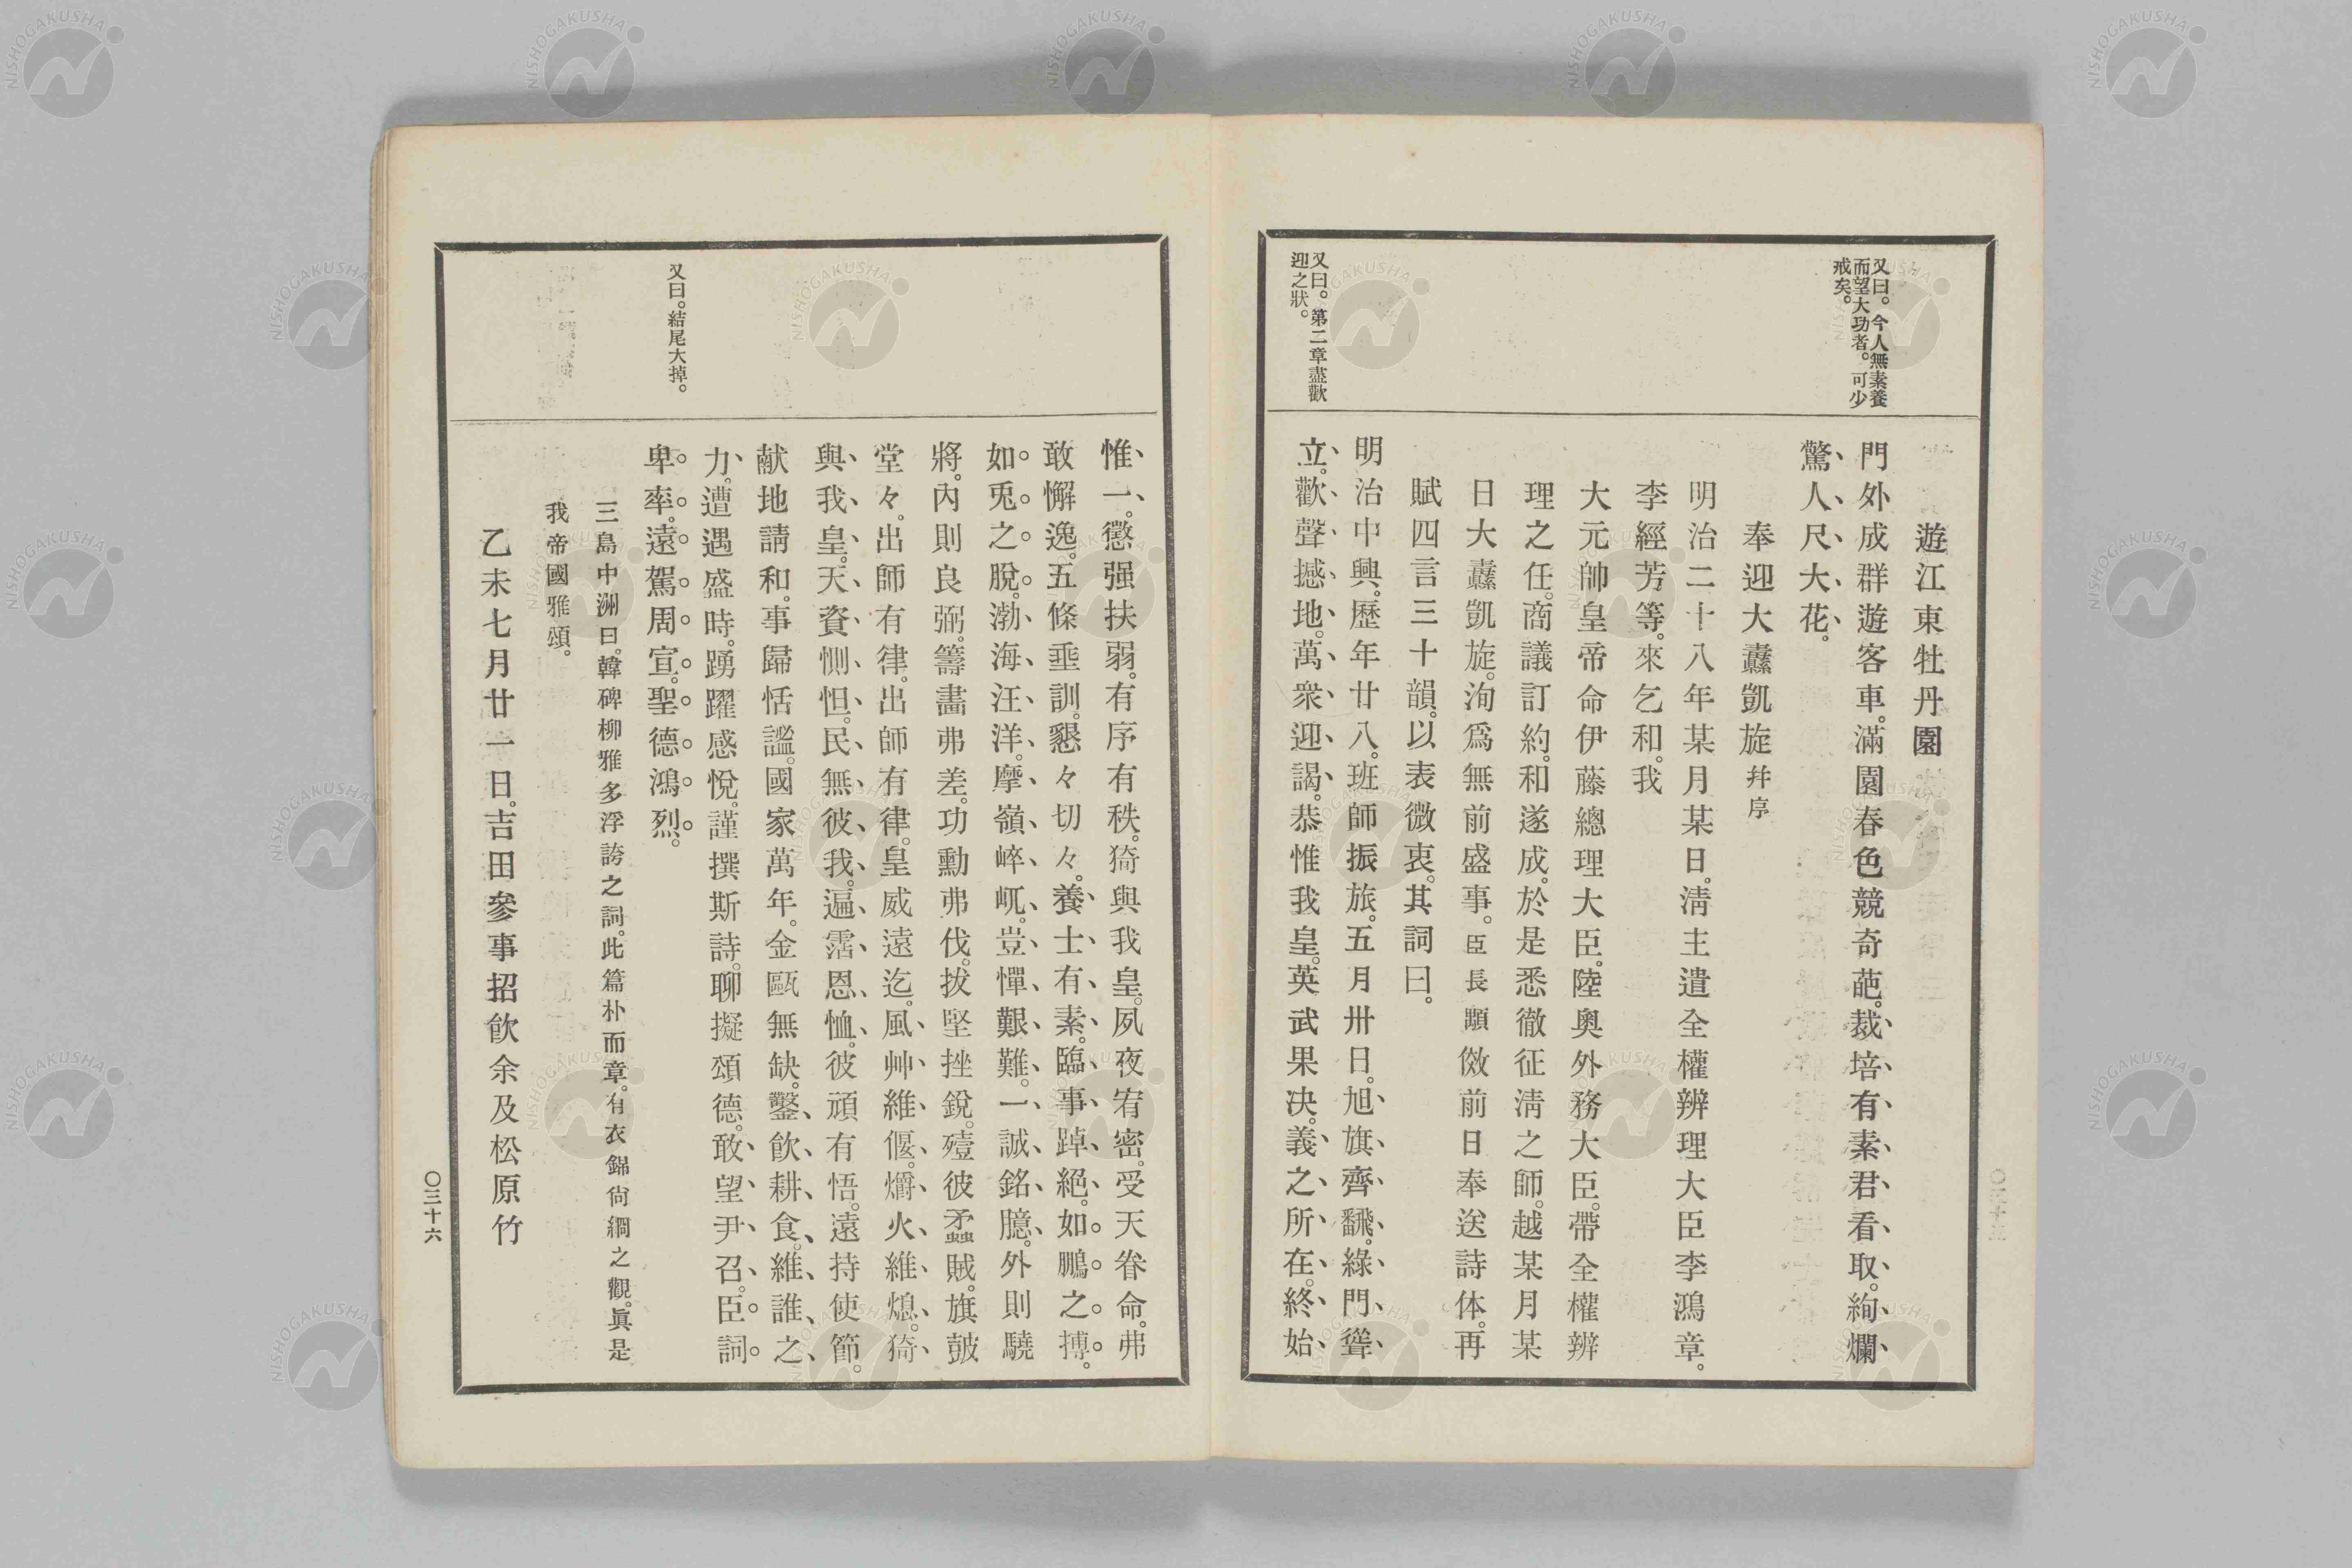 又曰。今人無素養
而望大功者。可少
戒矣。
遊江東牡丹園
門外成群遊客車。滿園春色競奇葩。裁培有素君看取。絢爛
驚人尺大花。
奉迎大纛凱旋 幷序
明治二十八年某月某日。淸主遣全權辨理大臣李鴻章。
李經芳等。來乞和。我
大元帥皇帝命伊藤總理大臣。陸奧外務大臣。帶全權辨
理之任。商議訂約。和遂成。於是悉徹征淸之師。越某月某
日大纛凱旋。洵爲無前盛事。臣長顒傚前日奉送詩体。再
賦四言三十韻。以表微衷。其詞曰。
又曰。第二章盡歡
迎之狀。
明治中興。歷年廿八。班師振旅。五月卅日。旭旗齊飜。綠門聳
立。歡聲撼地。萬衆迎謁。恭惟我皇。英武果決。義之所在。終始
惟一。懲强扶弱。有序有秩。猗與我皇。夙夜宥密。受天眷命。弗
敢懈逸。五條垂訓。懇々切々。養士有素。臨事踔絕。如鵬之搏。
如兎之脫。渤海汪洋。摩嶺崒屼。豈憚艱難。一誠銘臆。外則驍
將。內則良弼。籌畵弗差。功勳弗伐。拔堅挫銳。殪彼蟊賊。旗鼓
堂々。出師有律。出師有律。皇威遠迄。風艸維偃。爝火維熄。猗
與我皇。天資惻怛。民無彼我。遍霑恩恤。彼頑有悟。遠持使節。
献地請和。事歸恬謐。國家萬年。金甌無缺。鑿飮耕食。維誰之
力。遭遇盛時。踴躍感悅。謹撰斯詩。聊擬頌德。敢望尹召。臣詞
又曰。結尾大掉。
卑率。遠駕周宣。聖德鴻烈。
三島中洲曰。韓碑柳雅多浮誇之詞。此篇朴而章。有衣錦尙綱之觀。眞是
我帝國雅頌。
乙未七月廿一日。吉田參事招飮余及松原竹
〇三十六